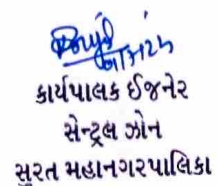 કાર્યપાલક ઈજનેર
સેન્ટ્રલ ઝોન
સુરત મહાનગરપાલિકા